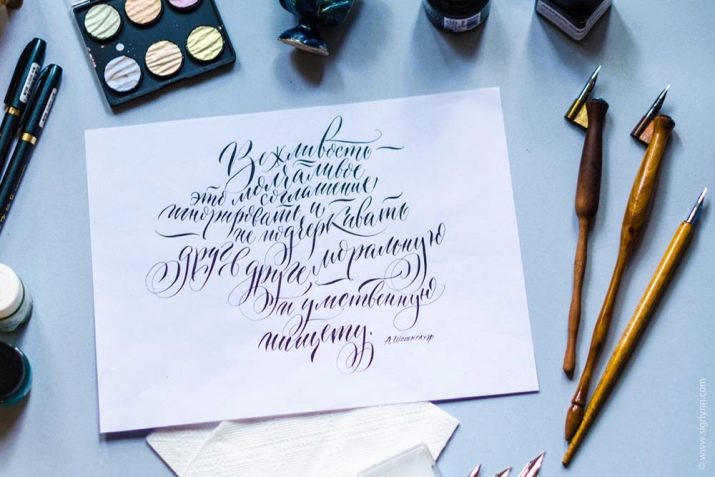 Вежливость –
это молчаливое
соглашение
игнорировать и
не подчеркивать
друг в друге моральную
и умственную
нищету.
А. Шопенгауэр
© www.sigrlynn.com